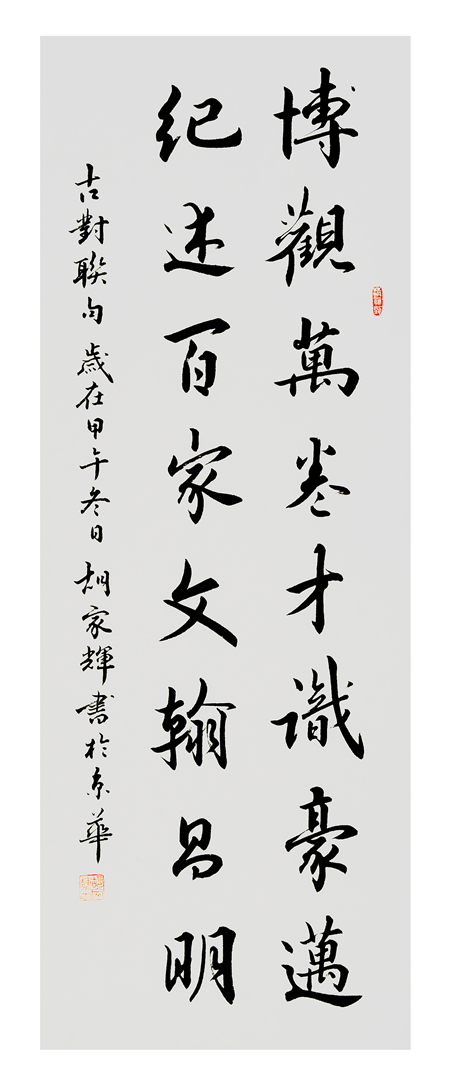 博觀萬卷才識豪邁
紀述百家文翰昌明
古對聯句 歲在甲午冬日 胡家輝書於京華